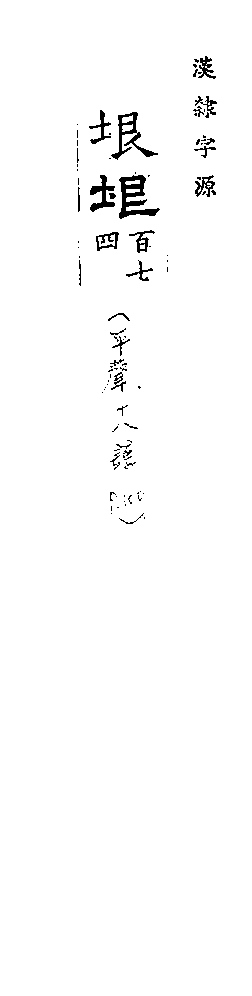 漢隸字源
垠
垠
百七
四
（平聲．十八諄